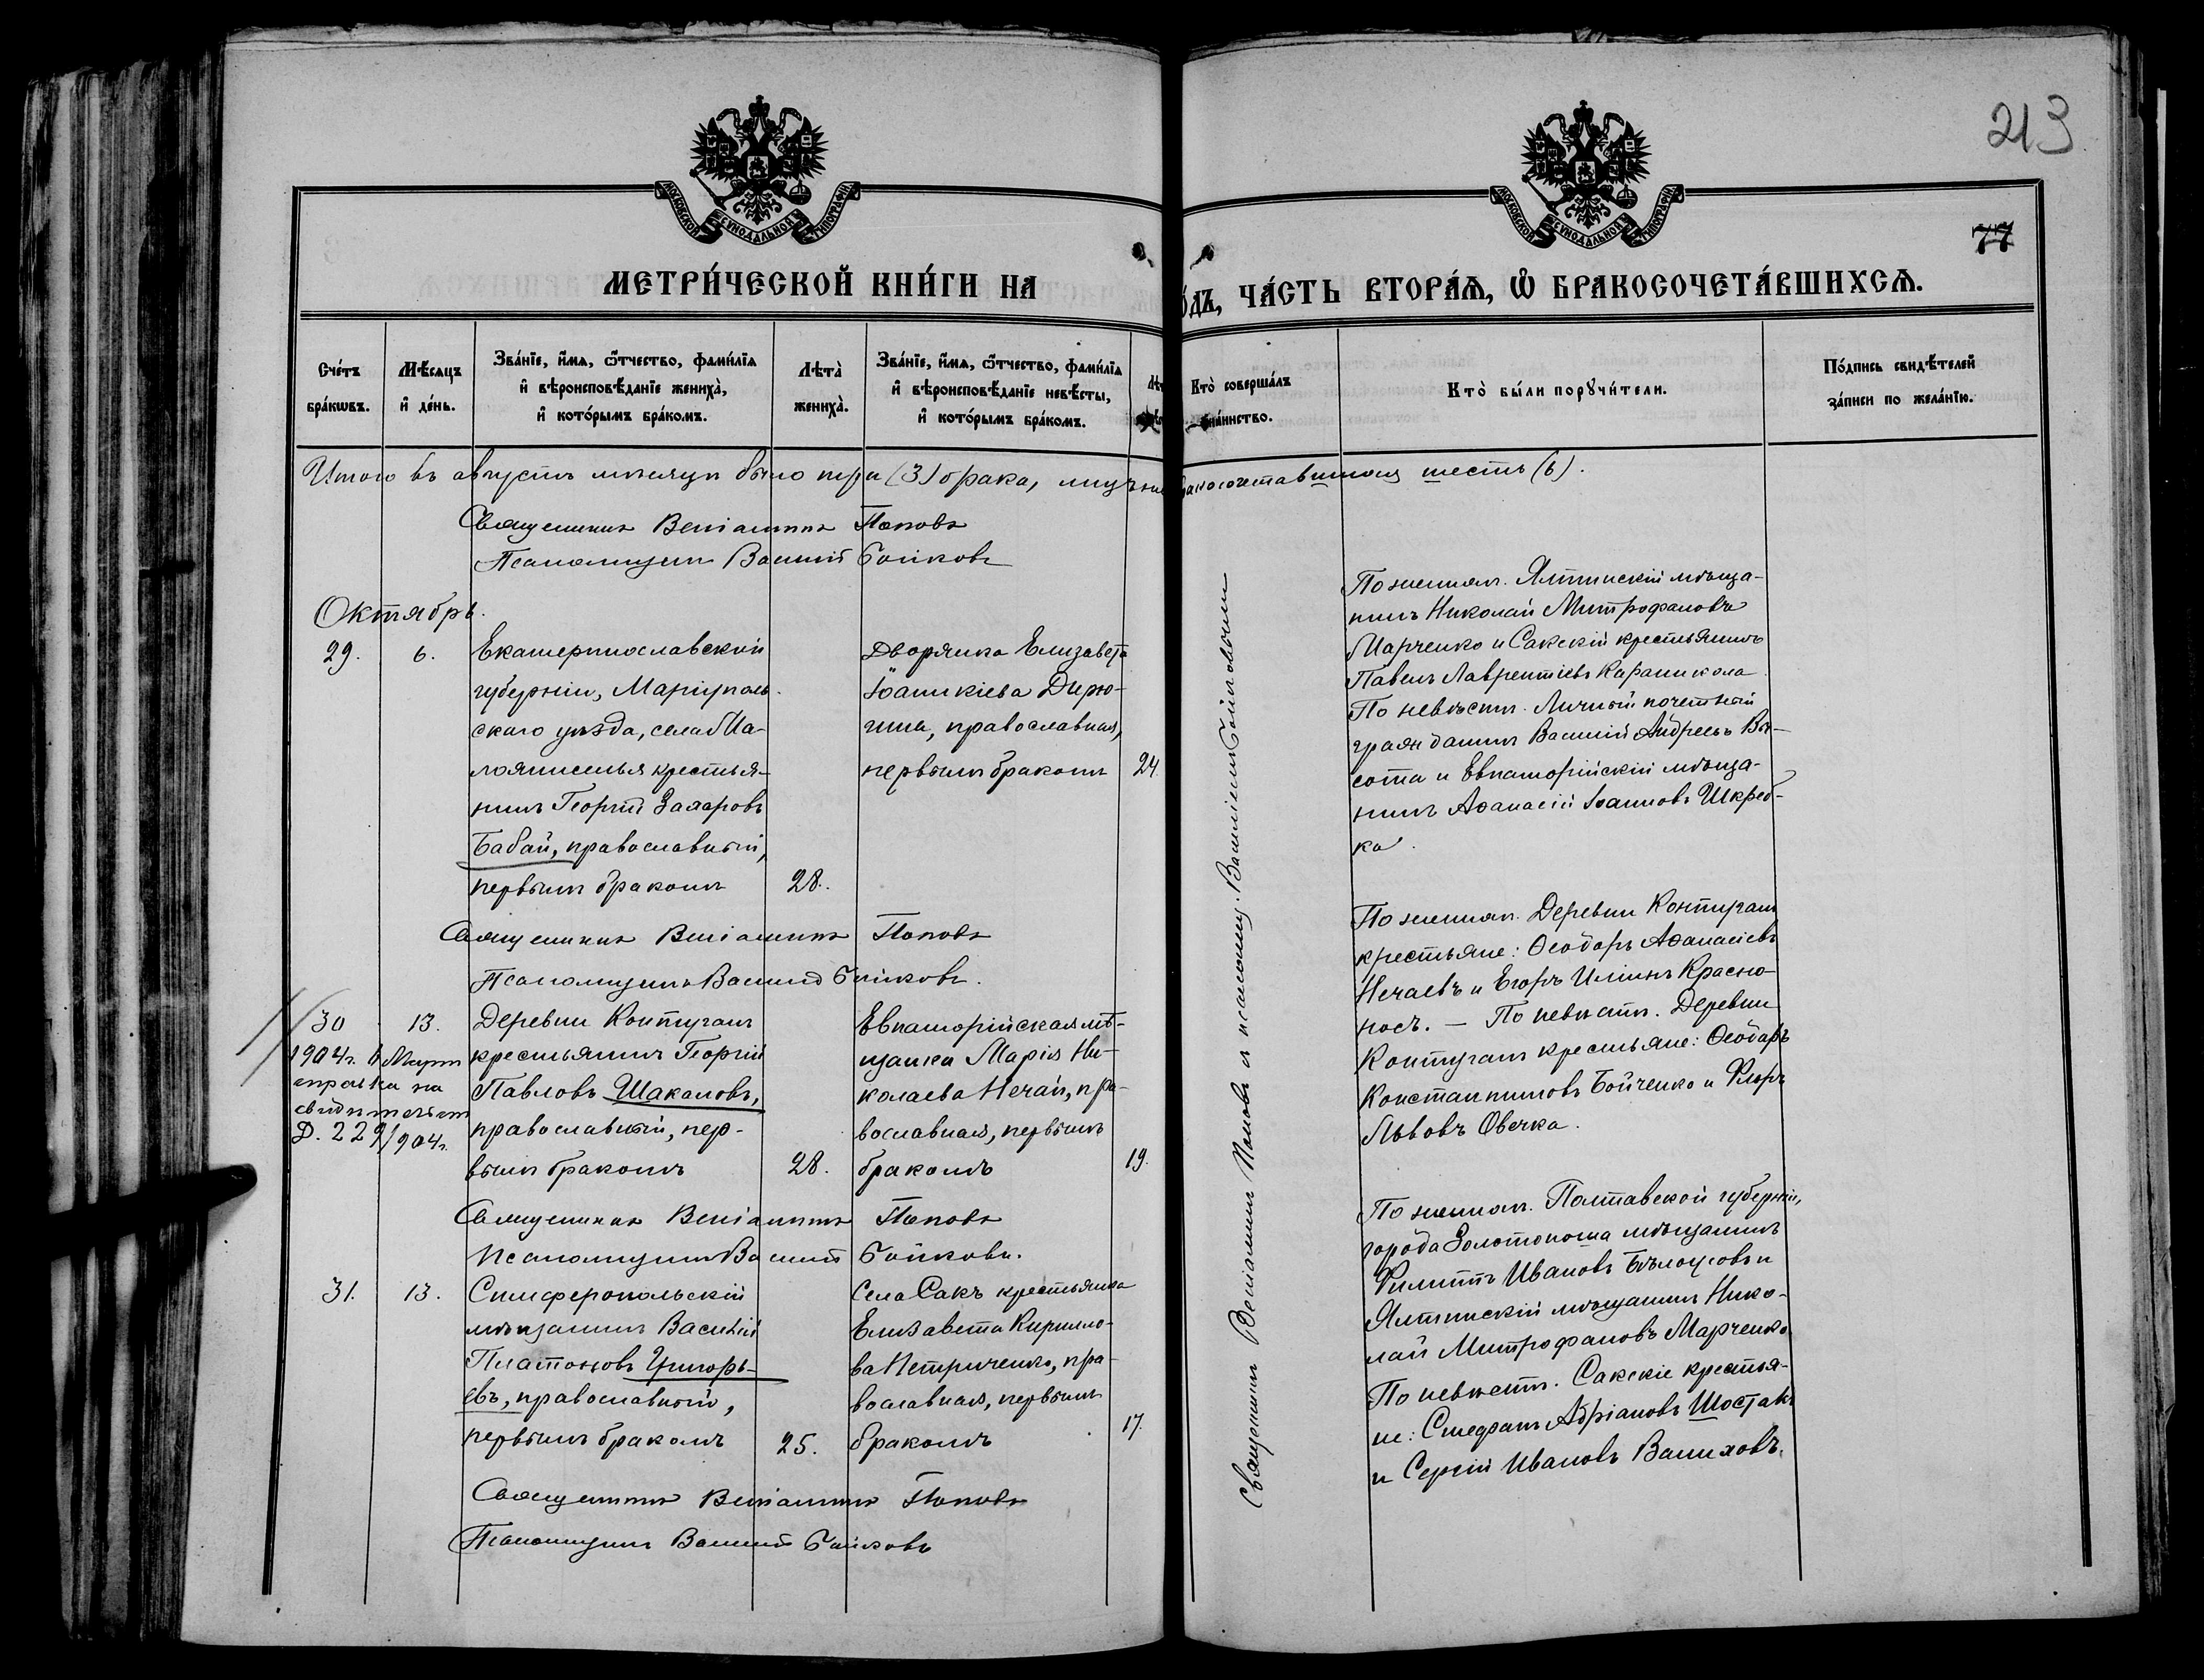 213
77
МОСКОВСКОЙ СѴНОДАЛЬНОЙ ТИПОГРАФІИ
МОСКОВСКОЙ СѴНОДАЛЬНОЙ ТИПОГРАФІИ
МЕТРИ́ЧЕСКОЙ КНИ́ГИ НА
О́ДЪ, ЧА́СТЬ ВТОРА́Ѧ, Ѡ҆ БРАКОСОЧЕТА́ВШИХСѦ.
Сче́тъ бра́кѡвъ.
Мѣ́сѧцъ и҆ де́нь.
Зва́нїе, и҆́мѧ, ѻ҆́тчество, фами́лїѧ и҆ вѣроисповѣ́данїе жениха̀, и҆ кото́рымъ бра́комъ.
Лѣта̀ жениха̀.
Зва́нїе, и҆́мѧ, ѻ҆́тчество, фами́лїѧ и҆ вѣроисповѣ́данїе невѣ́сты, и҆ кото́рымъ бра́комъ.
Кто̀ соверша́лъ
Кто̀ бы́ли порꙋчи́тели.
По́дпись свидѣ́телей за́писи по жела́нїю.
Итого въ августѣ мѣсяцѣ было три (3) брака, лицъ бракосочетавшихся шесть (6).
Священникъ Веніаминъ Поповъ
Псаломщикъ Василій Бойковъ
Октябрь.
29.
6.
Екатеринославской
губерніи, Маріуполь-
скаго уѣзда, села Ма-
лоянисоля крестья-
нинъ Георгій Захаровъ
Бабай, православный,
первымъ бракомъ
28.
Дворянка Елизавета
Іоаникіева Дерю-
гина, православная,
первымъ бракомъ
24.
По женихѣ. Ялтинскій мѣща-
нинъ Николай Митрофановъ
Марченко и Сакскій крестьянинъ
Павелъ Лаврентіевъ Караникола
По невѣстѣ. Личный почетный
гражданинъ Василій Андреевъ Вы-
сота и Евпаторійскій мѣща-
нинъ Аѳанасій Іоанновъ Шкреб-
ка.
Священникъ Веніаминъ Поповъ
Псаломщикъ Василій Бойковъ.
30
13.
1904г. 6 Март
справка на
свидѣтельст
Д. 229/904г.
Деревни Контуганъ
крестьянинъ Георгій
Павловъ Шакаловъ,
православный, пер-
вымъ бракомъ
28.
Евпаторійская мѣ-
щанка Марія Ни-
колаева Нечай, пра-
вославная, первымъ
бракомъ
19.
По женихѣ. Деревни Контуганъ
крестьяне: Ѳеодоръ Аѳанасіевъ
Нечаевъ и Егоръ Ильинъ Красно-
носъ. — По невѣстѣ. Деревни
Контуганъ крестьяне: Ѳеодоръ
Константиновъ Бойченко и Флоръ
Львовъ Овечка.
Священникъ Веніаминъ Поповъ
Псаломщикъ Василій Бойковъ.
31.
13.
Симферопольскій
мѣщанинъ Василій
Платоновъ Григорь-
евъ, православный,
первымъ бракомъ
25.
Села Сакъ крестьянка
Елизавета Кирилло-
ва Петриченко, пра-
вославная, первымъ
бракомъ
17.
По женихѣ. Полтавской губерніи,
города Золотоноша мѣщанинъ
Филиппъ Ивановъ Бѣлоусовъ и
Ялтинскій мѣщанинъ Нико-
лай Митрофановъ Марченко.
По невѣстѣ. Сакскіе крестья-
не: Стефанъ Адріановъ Шостакъ
и Сергій Ивановъ Валиховъ.
Священникъ Веніаминъ Поповъ
Псаломщикъ Василій Бойковъ
Священникъ Веніаминъ Поповъ съ псаломщ. Василіемъ Бойковымъ